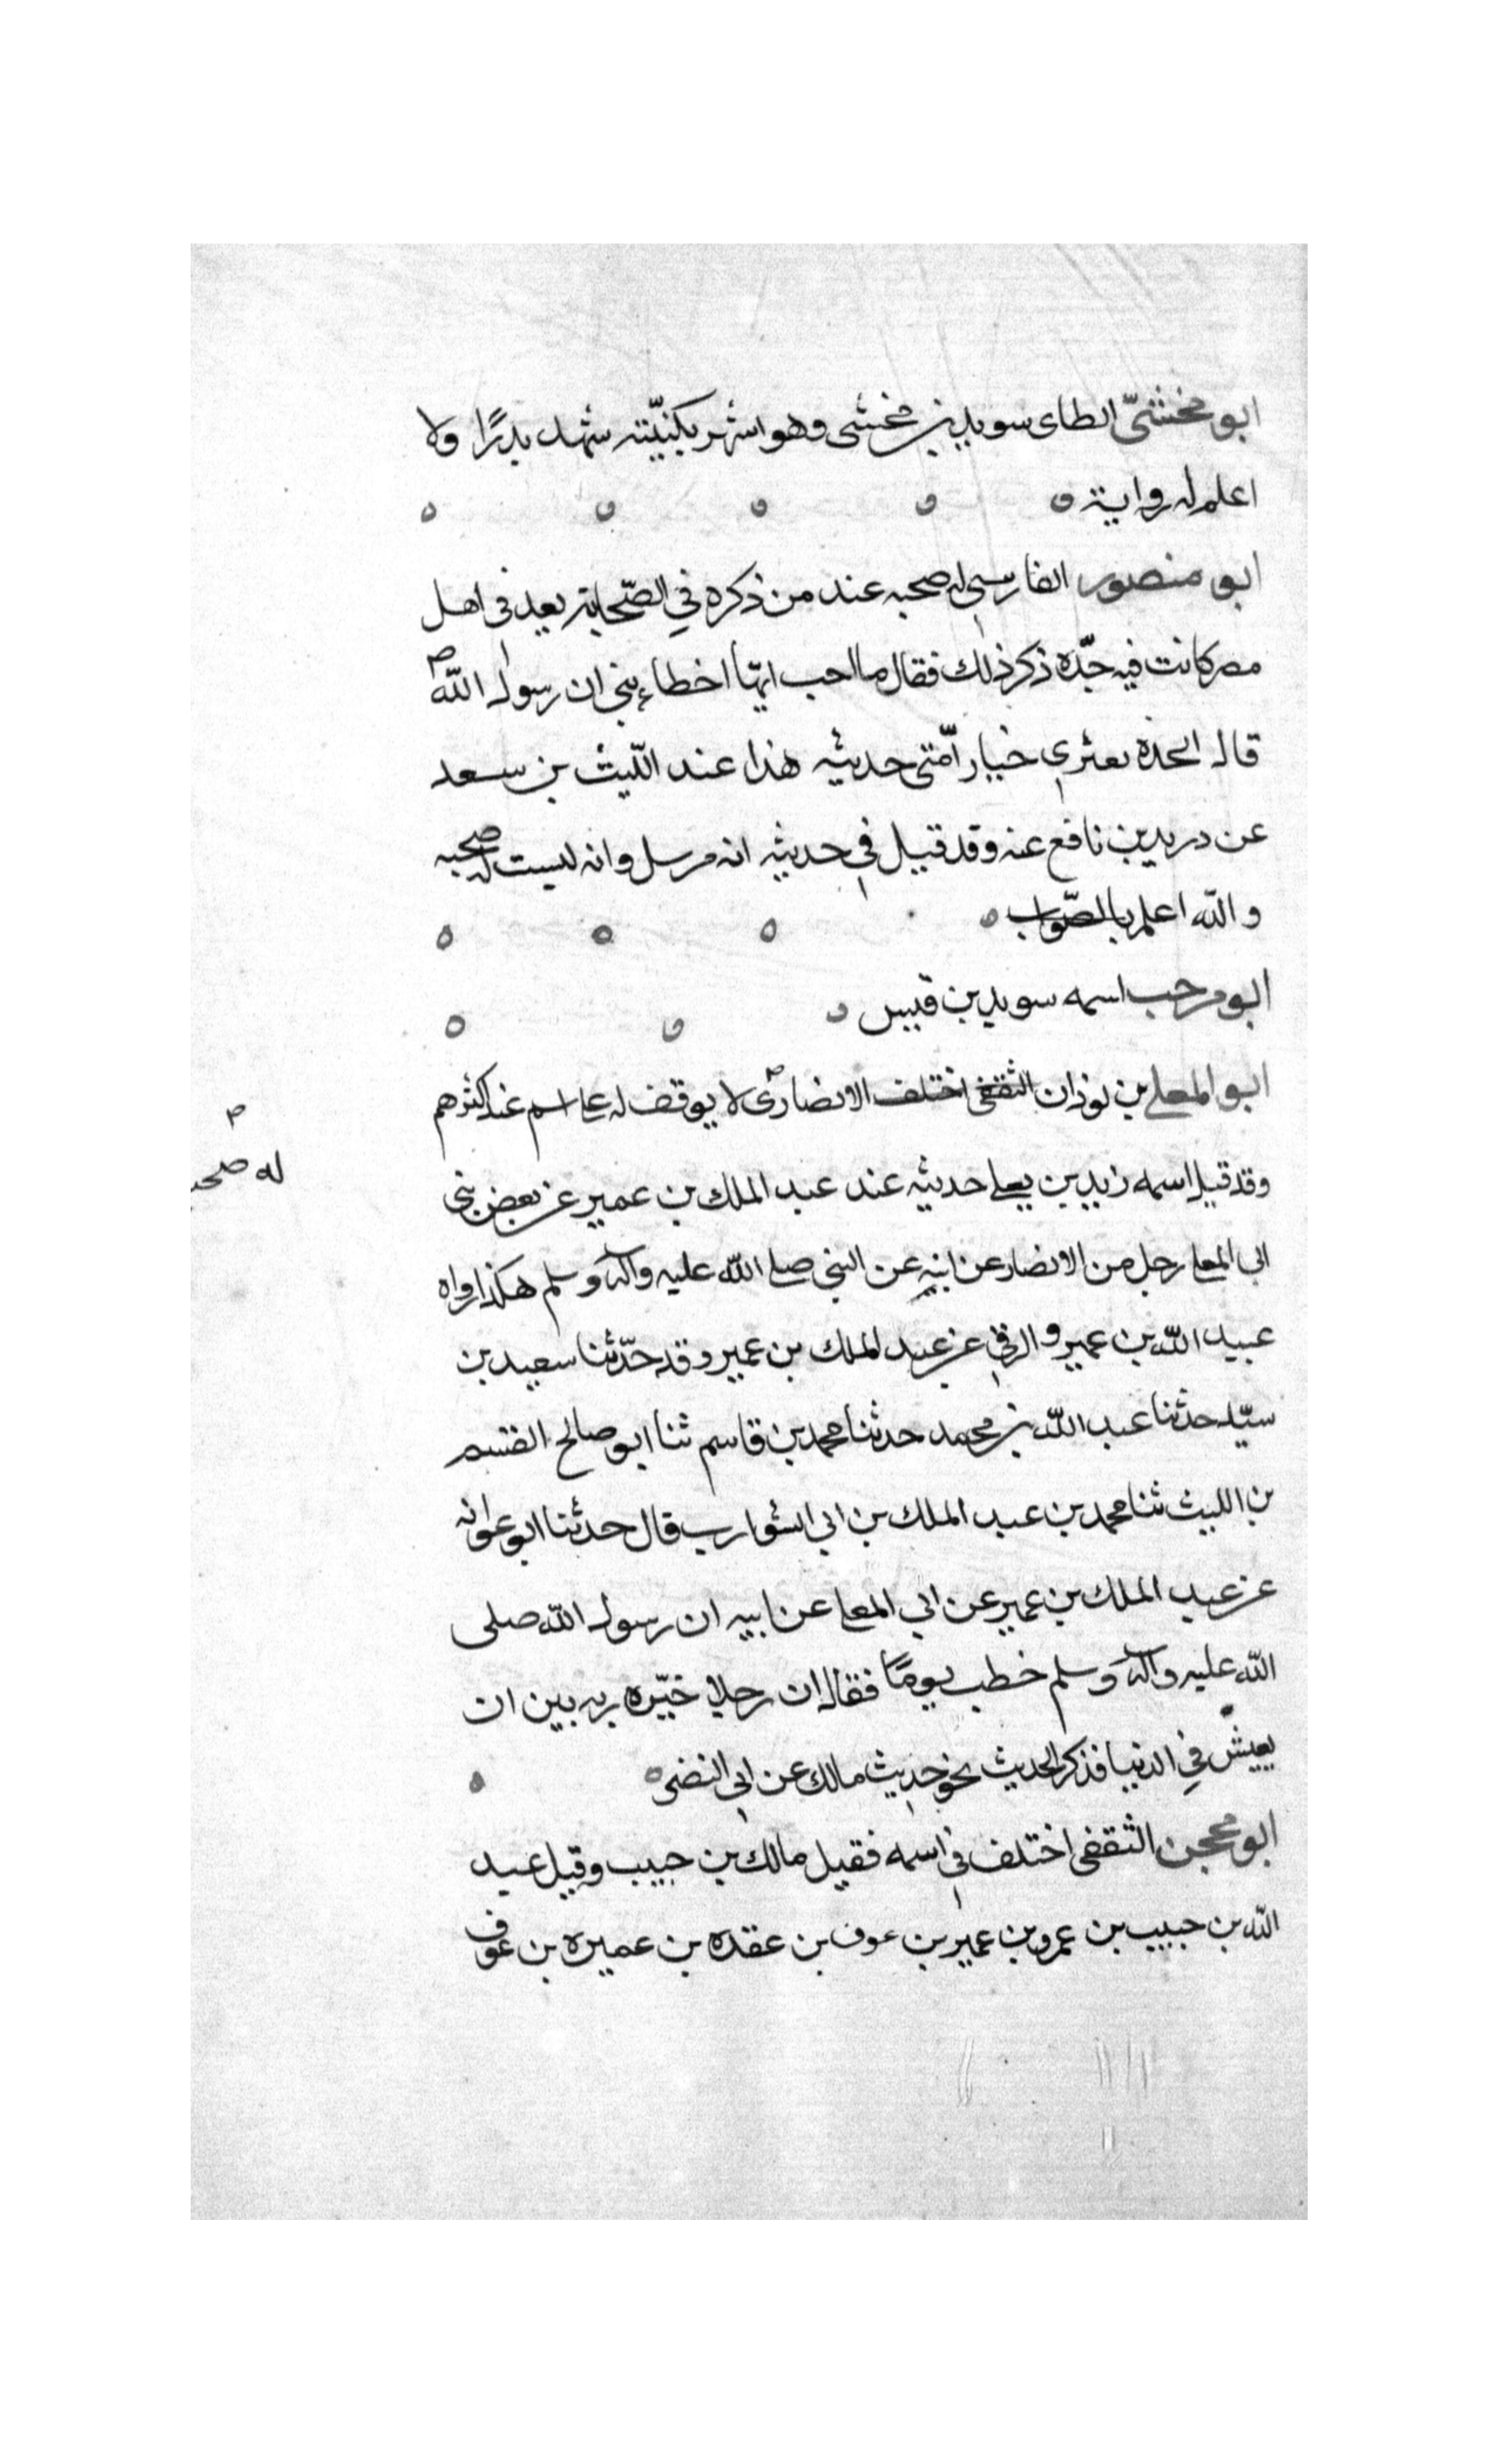 ابو مخشىّ الطاى سويد بن مخشى وهو اشهر بكنيّته شهد بدرًا ولا
اعلم له رواية
ابو منصور الفارسى له صحبه عند من ذكره فى الصّحابة يعد فى اهل
مصر كانت فيه حدّه ذكر ذلك فقال ما احب انّها اخطاءتنى ان رسول الله
قال الحده تعترى خيار امّتى حديثه هذا عند اللّيث بن سعد
عن دريد بن نافع عنه وقد قيل فى حديثه انه مرسل وانه ليست له صحبه
والله اعلم بالصّواب
ابو مرحب اسمه سويد بن قيس
ابو المعلى بن لوذان الثقفى اختلف الانصارى لا يوقف له على اسم عند اكثرهم
له صحبـ
وقد قيل اسمه زيد بن يعلى حديثه عند عبد الملك بن عمير عن بعض بنى
ابى المعلى رجل من الانصار عن ابيه عن النبى صلى الله عليه وآله وسلم هكذا رواه
عبيد الله بن عمير و الرقى عن عبد الملك بن عمير وقد حدّثنا سعيد بن
سيّد حدثنا عبد الله بن محمد حدثنا محمد بن قاسم ثنا ابو صالح القسم
بن الليث ثنا محمد بن عبد الملك بن ابى الشوارب قال حدثنا ابو عوانه
عن عبد الملك بن عمير عن ابى المعلى عن ابيه ان رسول الله صلى
الله عليه وآله وسلم خطب يومًا فقال ان رجلا خيّره ربه بين ان
يعيش فى الدنيا فذكر الحديث نحو حديث مالك عن ابى النضر
ابو محجن الثقفى اختلف فى اسمه فقيل مالك بن حبيب وقيل عبد
الله بن حبيب بن عمرو بن عمير بن عوف بن عقده بن عميره بن عوف